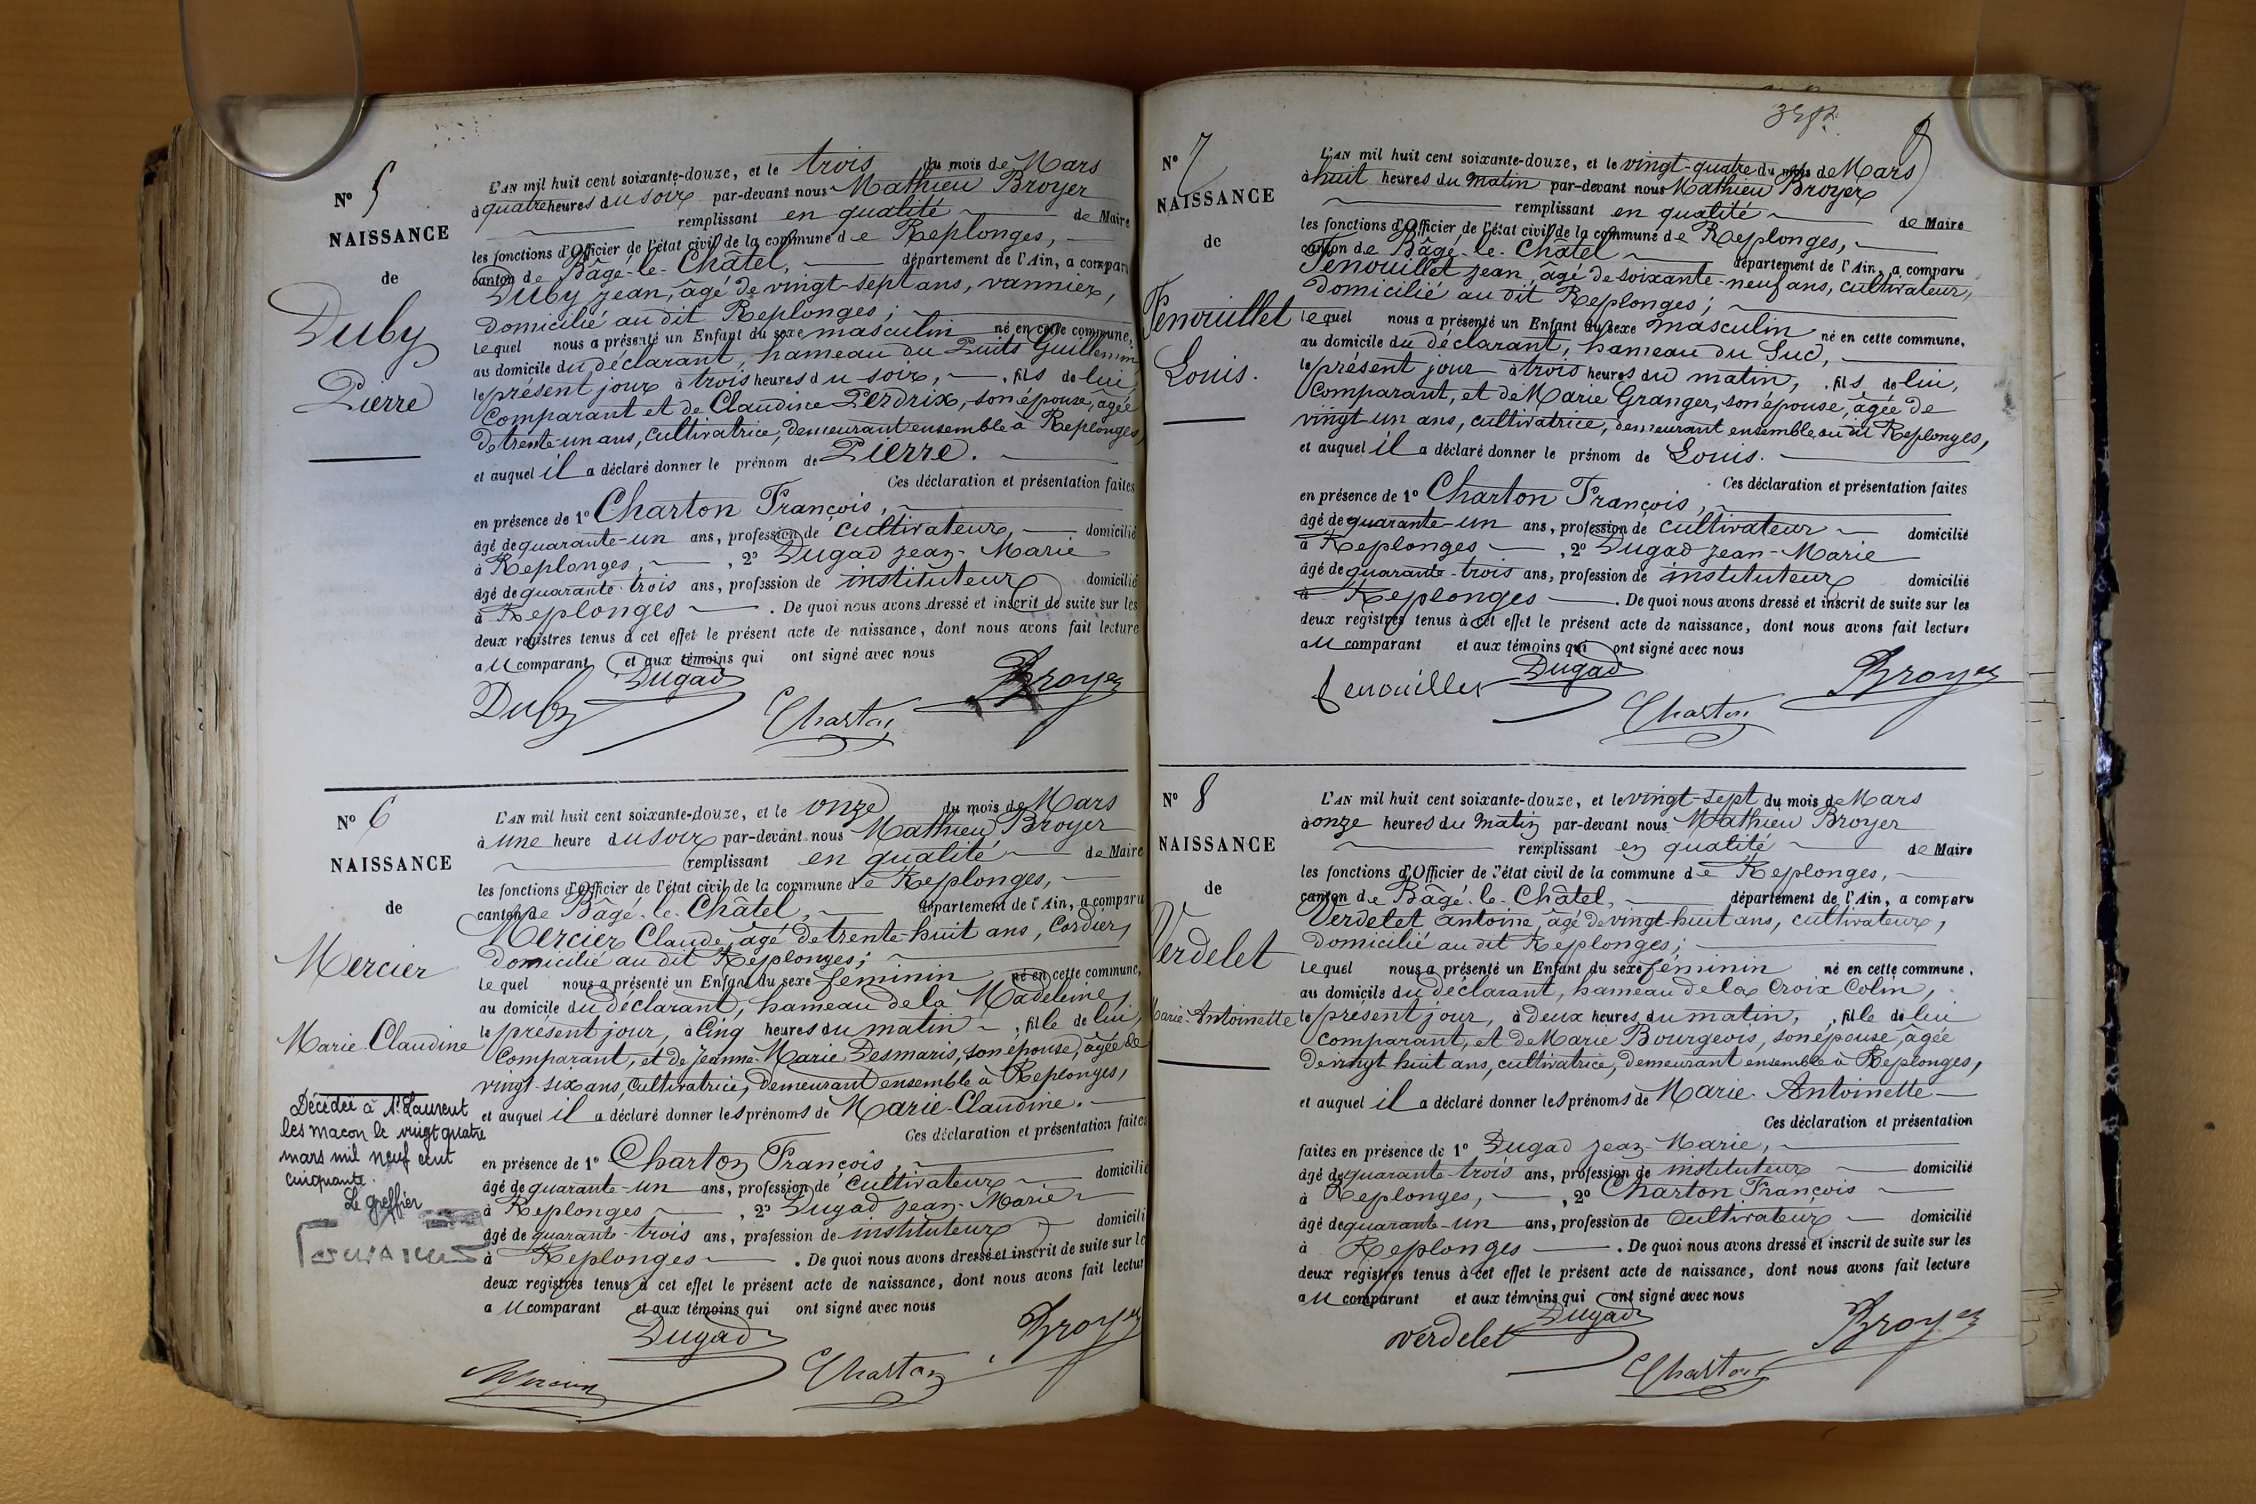 N° 5
NAISSANCE
de
Duby
Pierre
L'AN mil huit cent soixante-douze, et le trois du mois de Mars
à quatre heures du soir par-devant nous Mathieu Broyer
remplissant en qualité de Maire
les fonctions d'Officier de l'état civil de la commune de Replonges,
canton de Bâgé-le-Châtel, département de l'Ain, a comparu
Duby Jean, âgé de vingt-sept ans, vannier,
domicilié au dit Replonges;
lequel nous a présenté un Enfant du sexe masculin né en cette commune,
au domicile du déclarant, hameau du Puits Guillemin
le présent jour à trois heures du soir, fils de lui
Comparant et de Claudine Perdrix, son épouse, âgée
de trente-un ans, cultivatrice, demeurant ensemble à Replonges,
et auquel il a déclaré donner le prénom de Pierre.
Ces déclaration et présentation faites
en présence de 1° Charton François,
âgé de quarante-un ans, profession de cultivateur, domicilié
à Replonges, 2° Dugad Jean-Marie
âgé de quarante-trois ans, profession de instituteur domicilié
à Replonges . De quoi nous avons dressé et inscrit de suite sur les
deux registres tenus à cet effet le présent acte de naissance, dont nous avons fait lecture
au comparant et aux témoins qui ont signé avec nous
Duby Dugad Charton Broyer
N° 6
NAISSANCE
de
Mercier
Marie Claudine
Décédée à St Laurent
les macon le vingt quatre
mars mil neuf cent
cinquante.
Le greffier
L'AN mil huit cent soixante-douze, et le onze du mois de Mars
à une heure du soir par-devant nous Mathieu Broyer
remplissant en qualité de Maire
les fonctions d'Officier de l'état civil de la commune de Replonges,
canton de Bâgé-le-Châtel, département de l'Ain, a comparu
Mercier Claude, âgé de trente-huit ans, Cordier,
domicilié au dit Replonges;
lequel nous a présenté un Enfant du sexe féminin né en cette commune,
au domicile du déclarant, hameau de la Madeleine,
le présent jour, à cinq heures du matin, fille de lui,
Comparant, et de Jeanne-Marie Desmaris, son épouse, âgée de
vingt-six ans, cultivatrice, demeurant ensemble à Replonges,
et auquel il a déclaré donner les prénoms de Marie-Claudine.
Ces déclaration et présentation faites
en présence de 1° Charton François,
âgé de quarante-un ans, profession de cultivateur domicilié
à Replonges , 2° Dugad Jean-Marie
âgé de quarante-trois ans, profession de instituteur domicilié
à Replonges . De quoi nous avons dressé et inscrit de suite sur les
deux registres tenus à cet effet le présent acte de naissance, dont nous avons fait lecture
au comparant et aux témoins qui ont signé avec nous
Mercier Dugad Charton Broyer
N° 7
NAISSANCE
de
Fenouillet
Louis.
L'AN mil huit cent soixante-douze, et le vingt-quatre du mois de Mars
à huit heures du matin par-devant nous Mathieu Broyer
remplissant en qualité de Maire
les fonctions d'Officier de l'état civil de la commune de Replonges,
canton de Bâgé-le-Châtel département de l'Ain, a comparu
Fenouillet Jean, âgé de soixante-neuf ans, cultivateur,
domicilié au dit Replonges;
lequel nous a présenté un Enfant du sexe masculin né en cette commune,
au domicile du déclarant, hameau du Sud,
le présent jour à trois heures du matin, fils de lui,
Comparant, et de Marie Granger, son épouse, âgée de
vingt-un ans, cultivatrice, demeurant ensemble au dit Replonges,
et auquel il a déclaré donner le prénom de Louis.
Ces déclaration et présentation faites
en présence de 1° Charton François,
âgé de quarante-un ans, profession de cultivateur domicilié
à Replonges , 2° Dugad Jean-Marie
âgé de quarante-trois ans, profession de instituteur domicilié
à Replonges . De quoi nous avons dressé et inscrit de suite sur les
deux registres tenus à cet effet le présent acte de naissance, dont nous avons fait lecture
au comparant et aux témoins qui ont signé avec nous
fenouillet Dugad Charton Broyer
N° 8
NAISSANCE
de
Verdelet
Marie-Antoinette
L'AN mil huit cent soixante-douze, et le vingt-sept du mois de Mars
à onze heures du matin par-devant nous Mathieu Broyer
remplissant en qualité de Maire
les fonctions d'Officier de l'état civil de la commune de Replonges,
canton de Bâgé-le-Châtel, département de l'Ain, a comparu
Verdelet Antoine, âgé de vingt-huit ans, cultivateur,
domicilié au dit Replonges;
lequel nous a présenté un Enfant du sexe féminin né en cette commune,
au domicile du déclarant, hameau de la Croix Colin,
le présent jour, à deux heures du matin, fille de lui
comparant, et de Marie Bourgeois, son épouse, âgée
de vingt huit ans, cultivatrice, demeurant ensemble à Replonges,
et auquel il a déclaré donner les prénoms de Marie-Antoinette
Ces déclaration et présentation
faites en présence de 1° Dugad Jean-Marie,
âgé de quarante-trois ans, profession de instituteur domicilié
à Replonges, , 2° Charton François
âgé de quarante-un ans, profession de Cultivateur domicilié
à Replonges . De quoi nous avons dressé et inscrit de suite sur les
deux registres tenus à cet effet le présent acte de naissance, dont nous avons fait lecture
au comparant et aux témoins qui ont signé avec nous
verdelet Dugad Charton Broyer